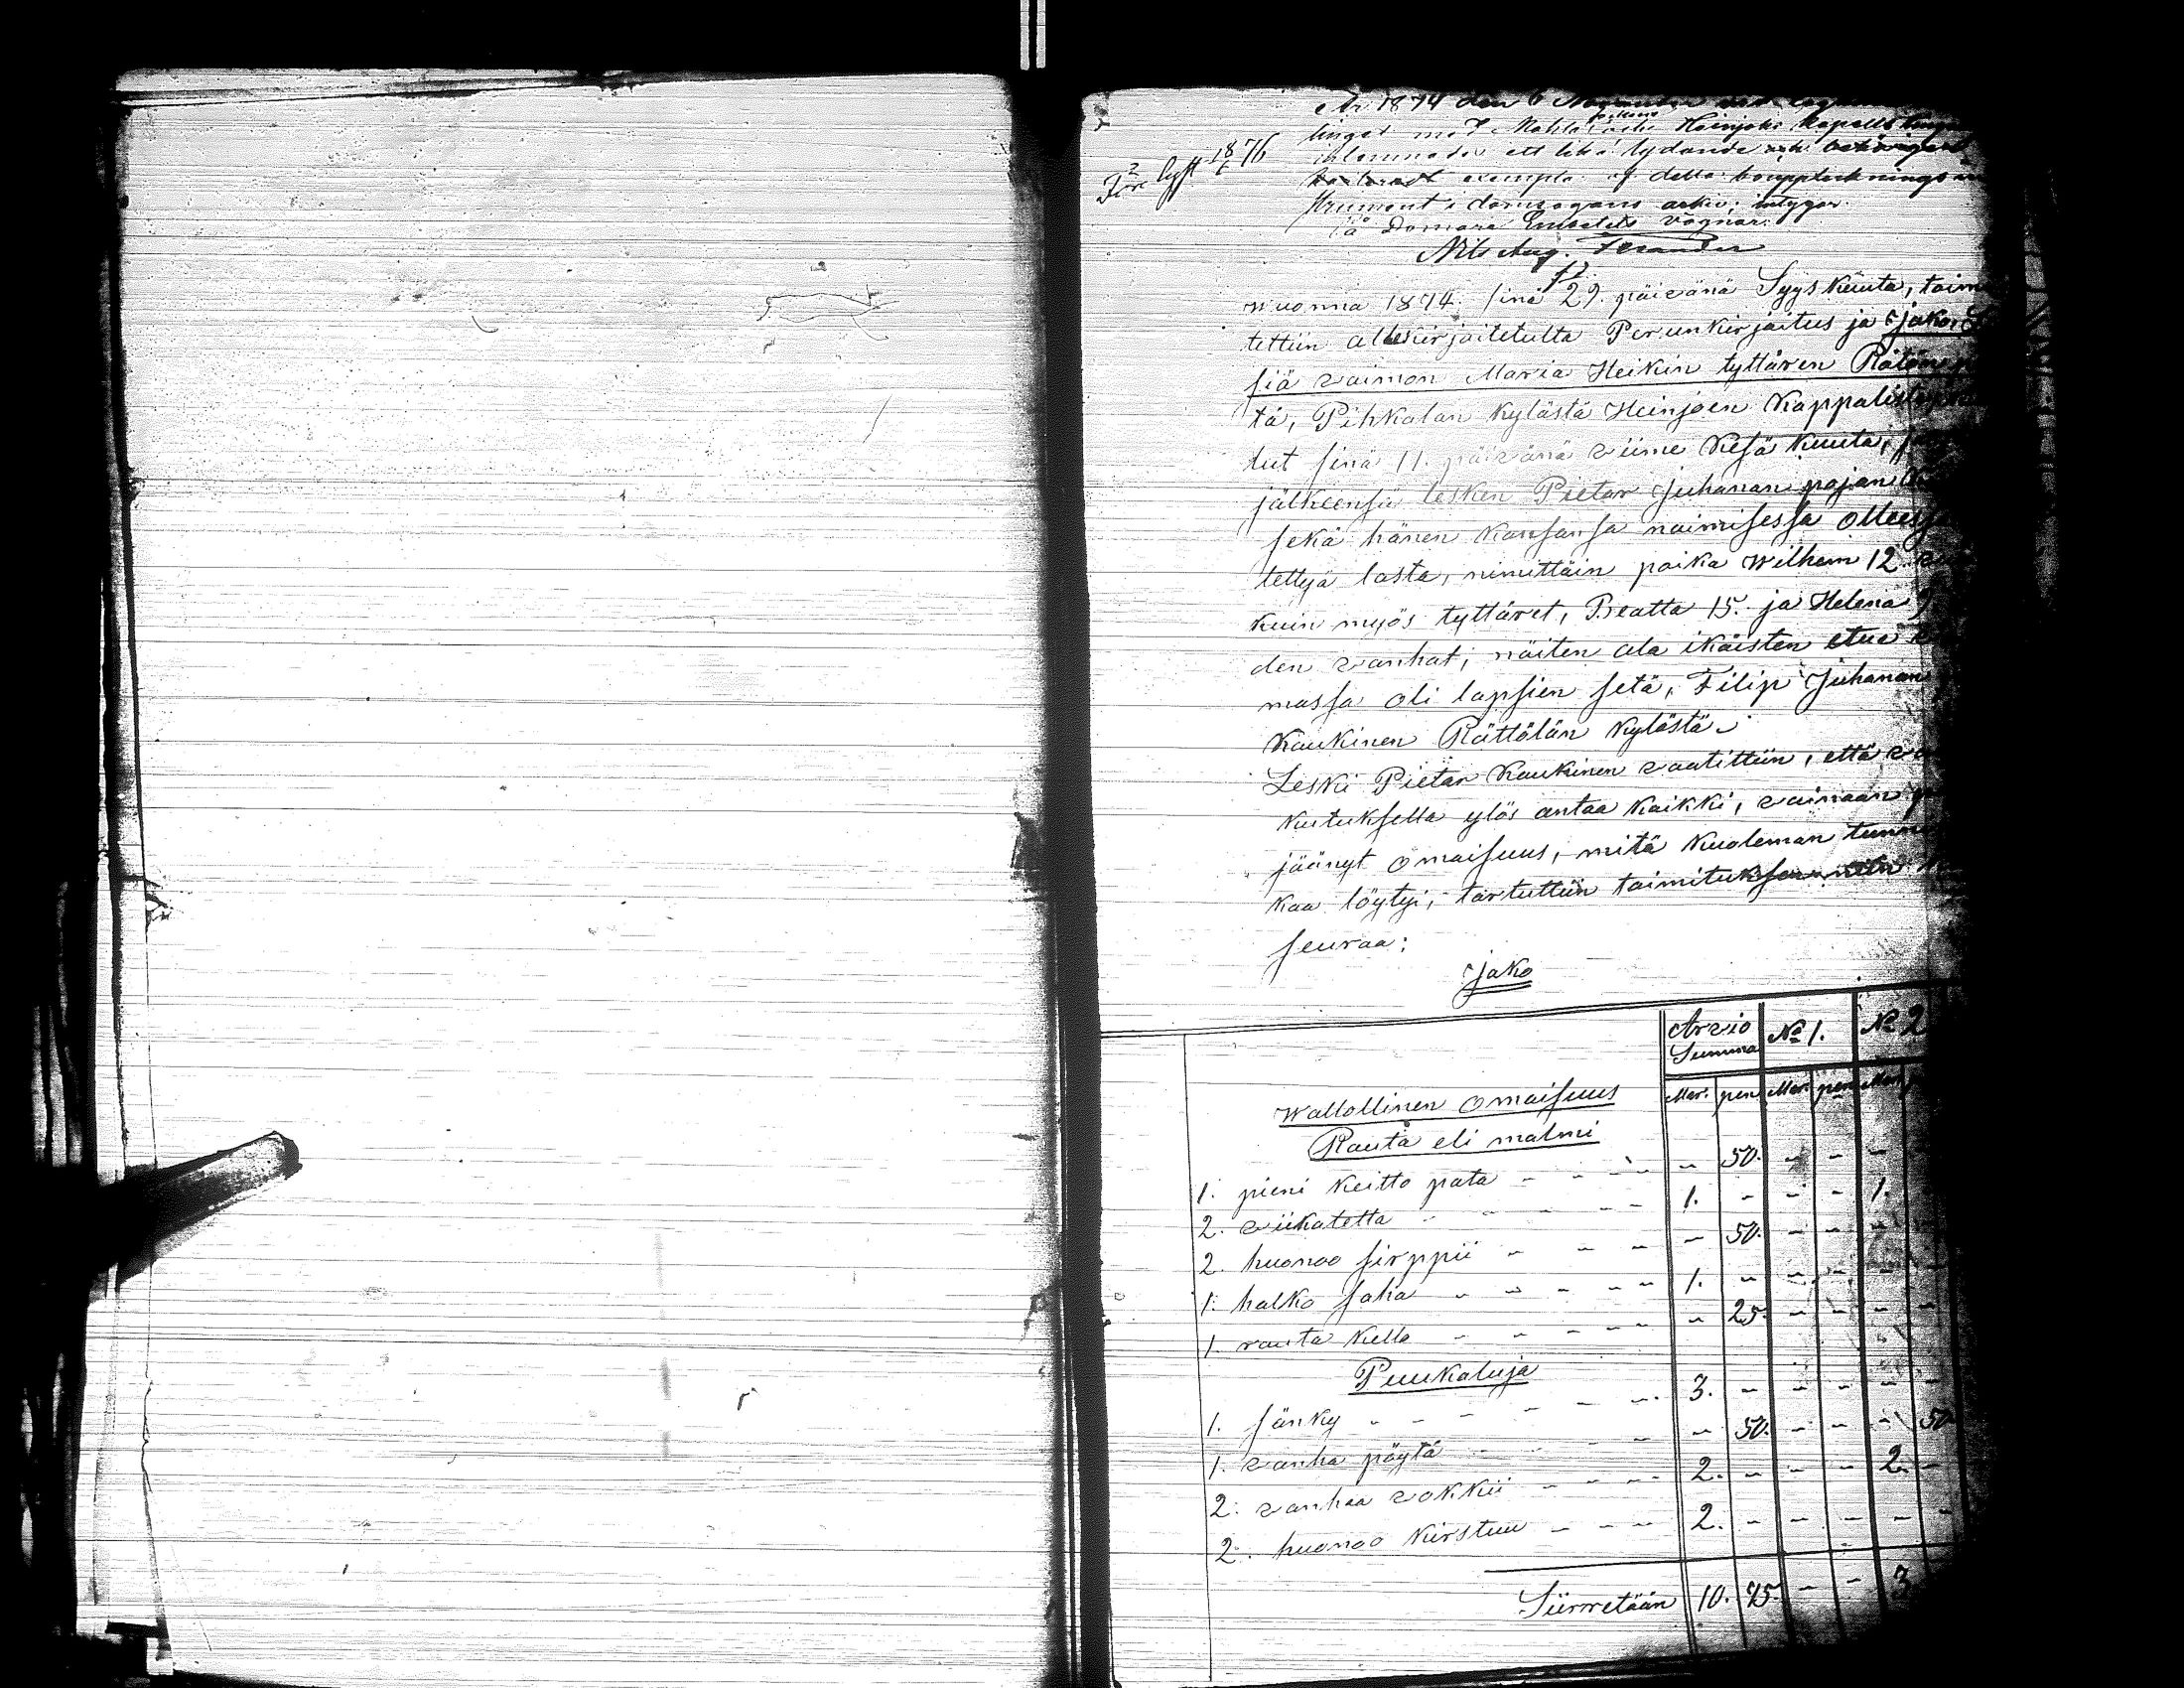 År 1874 den 6 November vid
tinget med Mohla och Heinjoki kapells
inlemnades ett lika lydande
exempla af detta bouppteckningsin
strument i domsagans arkiv.
på Domare Embetets vägnar:
Nils Aug.
Före lyft 2/6 1876
Wuonna 1874. sinä 29. päivänä Syyskuuta, toim
tettiin allekirjoitetulta Perunkirjoitus ja jako,
siä vaimon Maria Heikin tyttären
tä, Pihkalan Kylästä Heinjoen Kappalista
lut sinä 11. päivänä viime Kesä Kuuta,
jälkeensä lesken Pietar Juhanan pojan
sekä hänen Kanssansa naimisessa
tettyä lasta, nimittäin poika Wilhem 12.
kuin myös tyttäret, Beatta 15. ja Helena 9.
den vanhat; näiten ala ikäisten etua
massa oli lapsien setä, Filip Juhanan
Kaukinen Rättölän Kylästä.
Leski Pietar Kaukinen vaatittiin, että
kutuksella ylös antaa Kaikki, vainaan
jäänyt omaisuus, mitä Kuoleman
kaa löytyi; tartuttiin
seuraa:
Jako
Arvio Summa No 1. No 2
Mar. pen Mar. pen Mar.
Wallollinen Omaisuus
Rauta eli malmi
1. pieni Keitto pata - - - - - 50. - - -
2. viikatetta - - - - - 1. - - - 1.
2. huonoo sirppii - - - - 50. - - - -
1. halko saha - - - - - 1. - - - - -
1. rauta Kello - - - - - - 25. - - - -
Puukaluja
1. sänky - - - - - - 3. - - - - -
1. vanha pöytä - - - - - 50. - - - 50
2. vanhaa vokkii - - - - 2. - - - 2. -
2. huonoo Kirstuu - - - 2. - - - - -
Siirretään 10. 75. - - 3